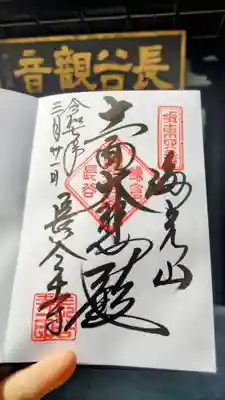 長谷觀音
海光山
十一面大悲殿
令和七年
三月廿一日
長谷寺
鎌倉
長谷